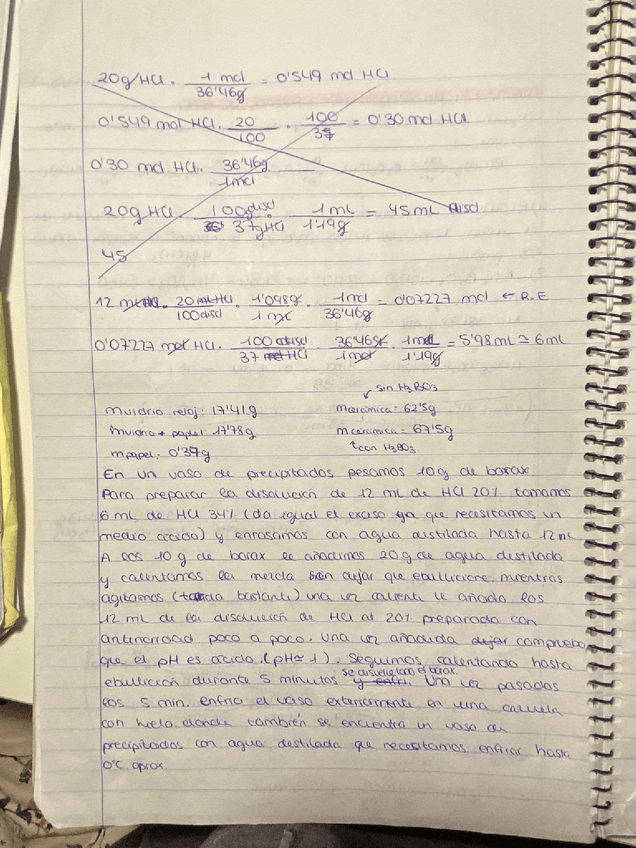 20g HCl · 1 mol / 36'46g = 0'549 mol HCl
0'549 mol HCl · 20 / 100 · 100 / 37 = 0'30 mol HCl
0'30 mol HCl · 36'46g / 1 mol
20g HCl · 100g disol / 37gHCl · 1 mL / 1'19g = 45 mL disol
45
12 · 20 mL HCl / 100 disol · 1'098g / 1 mL · 1 mol / 36'46g = 0'07227 mol ← R.E
0'07227 mol HCl · 100 disol / 37 HCl · 36'46g / 1 mol · 1 mL / 1'19g = 5'98 mL ≃ 6 mL
↙ sin H3BO3
m vidrio reloj: 17'41g m cerámica = 62'5g
m vidrio + papel: 17'78g m cerámica = 67'5g
m papel: 0'37g ↑ con H3BO3
En un vaso de precipitados pesamos 10g de borax
Para preparar la disolución de 12 mL de HCl 20% tomamos
6 mL de HCl 37% (da igual el exceso ya que necesitamos un
medio ácido) y enrasamos con agua destilada hasta 12 mL
A los 10g de borax le añadimos 20g de agua destilada
y calentamos la mezcla sin dejar que ebullicione mientras
agitamos (tarda bastante) una vez caliente le añado los
12 mL de la disolución de HCl al 20% preparada con
anterioridad poco a poco. Una vez añadida compruebo
que el pH es ácido (pH≃1). Seguimos calentando hasta
ebullición durante 5 minutos se disuelve todo el borax. Una vez pasados
los 5 min. enfrío el vaso exteriormente en una cazuela
con hielo donde también se encuentra un vaso de
precipitados con agua destilada que necesitamos enfriar hasta
0°C aprox.